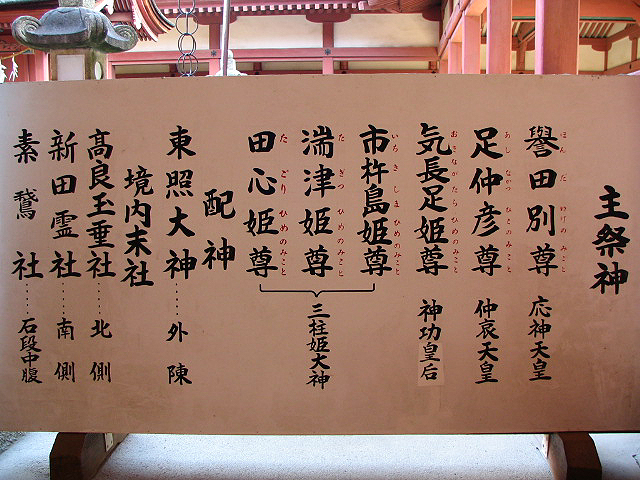 主祭神
誉田別尊 応神天皇
ほんだわけのみこと
足仲彦尊 仲哀天皇
あしなかつひこのみこと
気長足姫尊 神功皇后
おきながたらひめのみこと
市杵島姫尊
いちきしまひめのみこと
湍津姫尊
たぎつひめのみこと
田心姫尊
たごりひめのみこと
三柱姫大神
配神
東照大神……外陳
境内末社
高良玉垂社……北側
新田霊社……南側
素鵞社……石段中腹